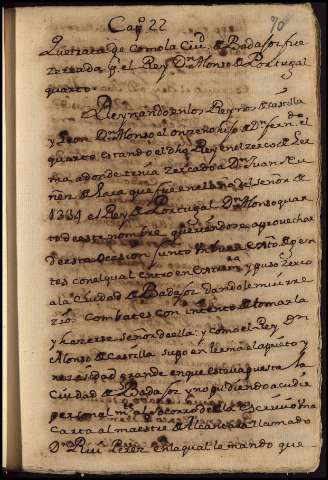 Capº 22 70
Que trata de Como la Ciud de Badajoz fue
zercada por el Rey Dn Alonso de Portugal
quarto.
Reynando en los Reynos de Castilla
y Leon Dn Alonso el onzeno hijo de Dn ferndo
quarto estando el dho Rey en el zerco de Ler
ma adonde tenia zercado a Dn Juan Nu
ñez de Lara que fue en el año del Señor de
1334 el Rey de Portugal Dn Alonso quar
to de este nombre queriendose aprovechar
de esta ocasion junto de gen
tes con el qual entro en Estrema y puso zerco
a la Ciudad de Badajoz dandole muy re
zios Combates con intento de tomarla
y hazerse Señor de ella: y como el Rey Dn
Alonso de Castilla supo en Lerma el aprieto y
nezesidad grande en que estava puesta la
Ciudad de Badajoz y no pudiendo acudir
personalmte al socorro de ella Escrivio una
Carta al maestre de Alcantara llamado
Dn Rui Perez en la qual le mando que